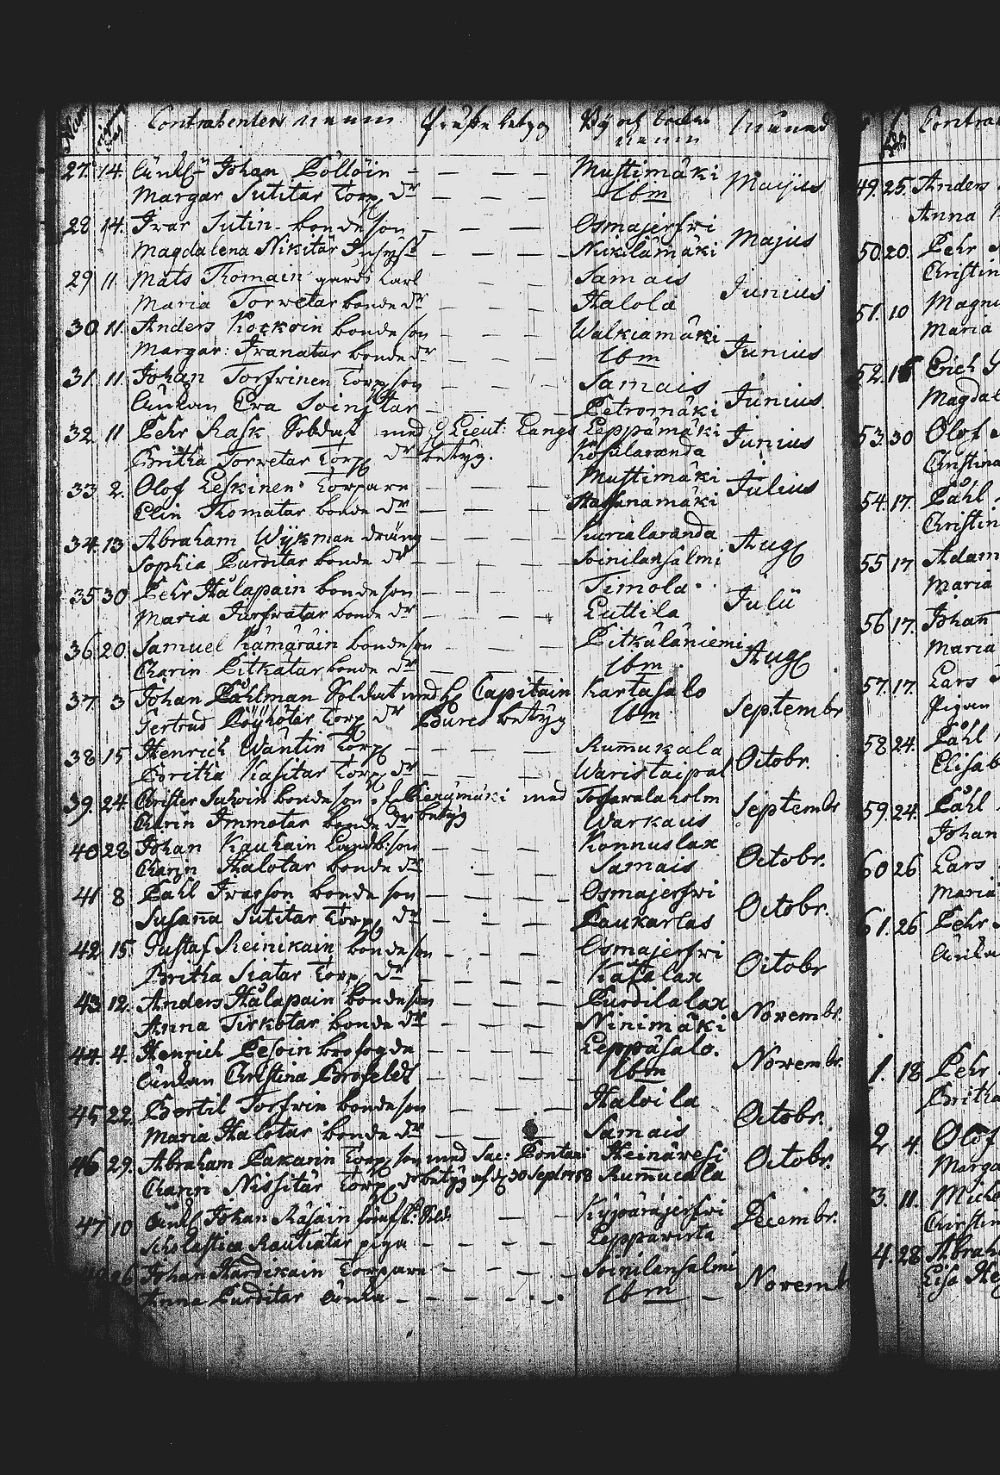 Contrahenternes namn Frelse betyg By och Orters namn Månad
27. 14. Änkl: Johan Pöllöin - - - Mustimäki Majus
Margar Sutitar Torp. dr - - - Ibm
28 14. Ivar Sutin bondeson - - - Osmajerfvi Majus
Magdalena Nikitär - - - Nikilämäki
29 11 Mats Tomain gardskarl - - - Samais Junius
Maria Torvetar bonde dr - - - Halola
30. 11. Anders Kockoin bondeson - - - Walkiamäki Junius
Margar: Iranatar bonde dr - - - Ibm
31 11. Johan Torfvinen Torp. son - - - Samais Junius
Änkan Eva Soinitar - - - Petromäki
32. 11 Pehr Rask Soldat med H Lieut: Langs Leppämäki Junius
Britha Torvetar Torp. dr betyg. Kosulanranda
33. 2. Olof Leskinen Torpare - - - Mustimäki Julius
Elin Tomatar bonde dr - - - Hassunamäki
34. 13 Abraham Wykman dräng - - - Kurolaranda Aug
Sophia Purditar bonde dr - - - Soinilansalmi
35 30 Pehr Halapain bondeson - - - Timola Julii
Maria Turfvatar bonde dr - - - Luttila
36 20. Samuel Kämäräin bondeson - - - Pitkäläniemi Aug
Charin Pitkatar bonde dr - - - Ibm
37. 3 Johan Påhlman Soldat med H Capitain Kartasalo Septembr
Gertrud Pöyhötar Torp. dr Bures betyg Ibm
38 15 Henrich Wäntin Torp. - - - Rummukala Octobr.
Britha Kasitar Torp. dr - - - Waristaipal
39. 24 Christer bondeson med Tossavalaholm Septembr
Charin Immotar bonde dr betyg Warkaus
40 28 Johan Kauhain Landb: son - - - Konnuslax Octobr.
Charin Halotar bonde dr - - - Samais
41 8 Påhl Ivarson bondeson - - - Osmajerfvi Octobr.
Susanna Sutitar Torp. dr - - - Paukarlax
42. 15. Gustaf Reinikain bondeson - - - Osmajerfvi Octobr
Britha Siatar Torp. dr - - - Kätälax
43 12. Anders Halapain bondeson - - - Purdilalax Novembr.
Anna Tirkotar bonde dr - - - Ninimäki
44. 4. Henrich Pesoin brofogde - - - Leppäsalo. Novembr.
Änkan Christina Brofeldt - - - Ibm
45 22. Bertil Torfvin bondeson - - - Halvila Octobr.
Maria Halotar bonde dr - - - Samais
46 29. Abraham Pakarin Torp. son med Sac: Pontani Heinävesi Octobr.
Charin Nissitar Torp. dr betyg af d. 30 Sept 1758 Rummucala
47 10 Änkl. Johan Räsain - - Decembr.
Scholastica Rautiatar piga - - - Leppävirta
26 Johan Hardikain Torpare - - - Soinilansalmi Novemb
Anna Purditar änka - - - Ibm
Contra
49. 25. Anders
Anna
50. 20. Pehr
Christin
51. 10 Magnu
Maria
52. 16 Erich
Magdal
53. 30 Olof
Christina
54. 17. Påhl
Christin
55 17 Adam
Maria
56 17. Johan
Maria
57. 17. Lars
Pigan
58 24. Påhl
Elisab
59. 24. Påhl
Johan
60 26 Lars
Maria
61. 26. Pehr
Änka
1. 18 Pehr
Britha
2 4. Olof
Marga
3. 11. Mich
Christin
4. 28. Abrah
Lisa